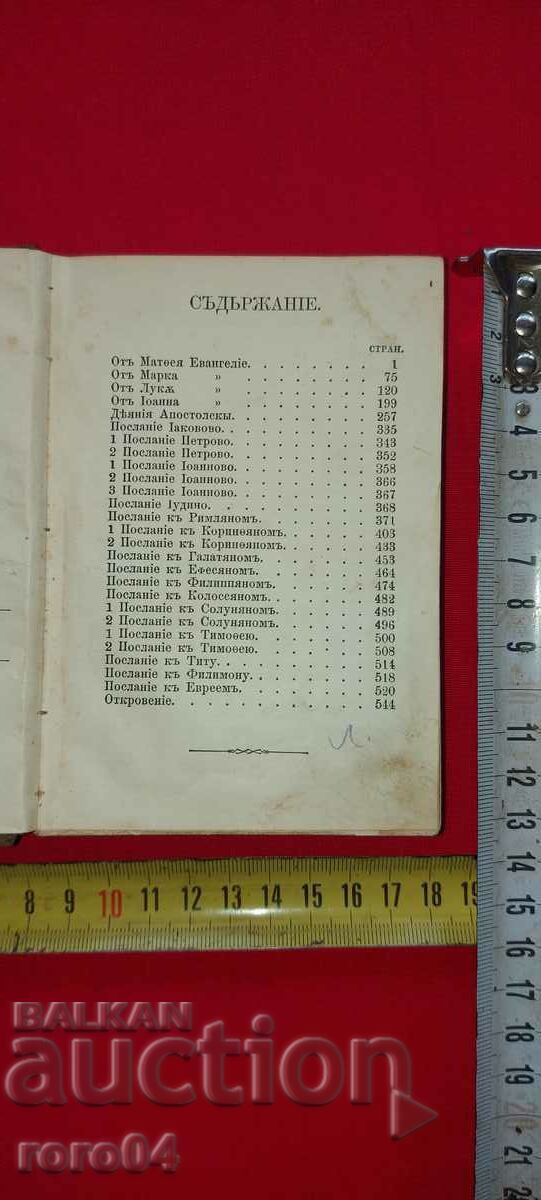 СЪДЬРЖАНІЕ.
СТРАН.
Отъ Матѳея Евангеліе. . . . . . . . 1
Отъ Марка » . . . . . . . . 75
Отъ Лукѫ » . . . . . . . . 120
Отъ Іоанна » . . . . . . . . 199
Дѣянія Апостолскы. . . . . . . . . 257
Посланіе Іаковово. . . . . . . . . 335
1 Посланіе Петрово. . . . . . . . . 343
2 Посланіе Петрово. . . . . . . . . 352
1 Посланіе Іоанново. . . . . . . . . 358
2 Посланіе Іоанново. . . . . . . . . 366
3 Посланіе Іоанново. . . . . . . . . 367
Посланіе Іудино. . . . . . . . . . 368
Посланіе къ Римляномъ. . . . . . . . 371
1 Посланіе къ Коринѳяномъ. . . . . . . 403
2 Посланіе къ Коринѳяномъ. . . . . . . 433
Посланіе къ Галатяномъ. . . . . . . . 453
Посланіе къ Ефесяномъ. . . . . . . . 464
Посланіе къ Филиппяномъ. . . . . . . 474
Посланіе къ Колоссяномъ. . . . . . . 482
1 Посланіе къ Солуняномъ. . . . . . . 489
2 Посланіе къ Солуняномъ. . . . . . . 496
1 Посланіе къ Тимоѳею. . . . . . . . 500
2 Посланіе къ Тимоѳею. . . . . . . . 508
Посланіе къ Титу. . . . . . . . . . 514
Посланіе къ Филимону. . . . . . . . 518
Посланіе къ Евреемъ. . . . . . . . . 520
Откровеніе. . . . . . . . . . . . 544
8 9 10 11 12 13 14 15 16 17 18 19
2 3 4 5 6 7 8 9 11 12 13 14 15 16 17 18 19 20 21
BALKAN
auction
roro04